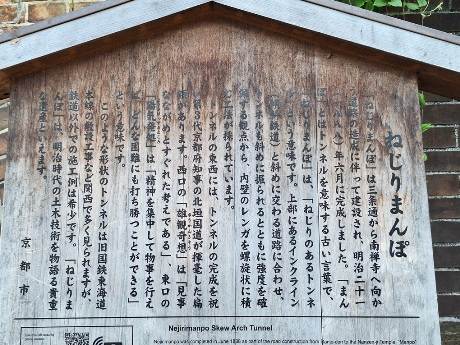 ねじりまんぽ
「ねじりまんぽ」は三条通から南禅寺へ向か
う道路の造成に伴って建設され、明治二十一
(一八八八)年六月に完成しました。「まん
ぽ」とはトンネルを意味する古い言葉で、
「ねじりまんぽ」は、「ねじりのあるトンネ
ル」という意味です。上部にあるインクライン
(傾斜鉄道)と斜めに交わる道路に合わせ、
トンネルも斜めに掘られるとともに強度を確
保する観点から、内壁のレンガを螺旋状に積
む工法が採られています。
トンネルの東西には、トンネルの完成を祝
い第3代京都府知事の北垣国道が揮毫した扁
額があります。西口の「雄観奇想」は「見事
なながめとすぐれた考えである」、東口の
「陽気発処」は「精神を集中して物事を行え
ば、どんな困難にも打ち勝つことができる」
という意味です。
このような形状のトンネルは旧国鉄東海道
本線の敷設工事など関西で多く見られますが、
鉄道以外での施工例は希少です。「ねじりま
んぽ」は、明治時代の土木技術を物語る貴重
な遺産といえます。
京都市
Nejirimanpo Skew Arch Tunnel
Nejirimanpo was completed in June 1888 as part of the road construction from Sanjo-dori to the Nanzen-ji Temple. "Manpo"